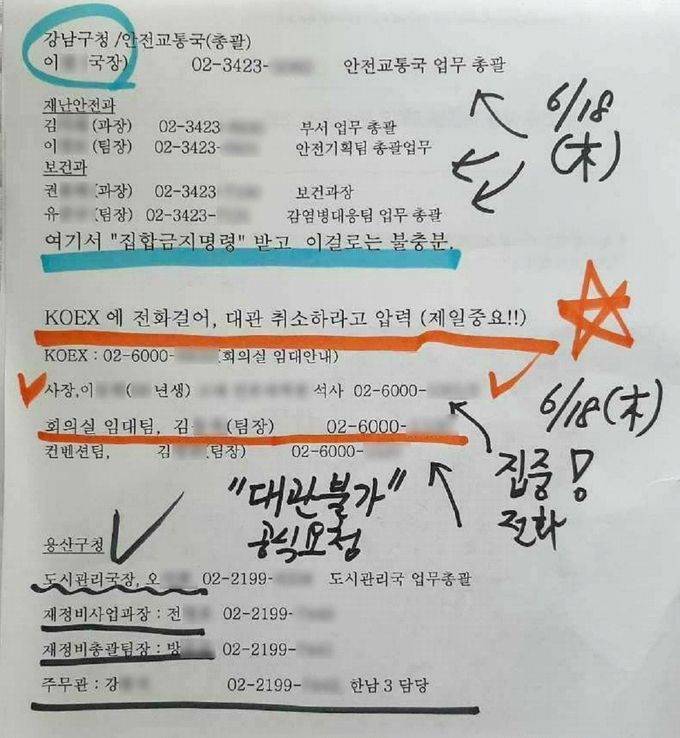 강남구청 /안전교통국(총괄)
이 국장) 02-3423- 안전교통국 업무 총괄
6/18
(木)
재난안전과
김 (과장) 02-3423 부서 업무 총괄
이 (팀장) 02-3423- 안전기획팀 총괄업무
보건과
권 (과장) 02-3423 보건과장
유 (팀장) 02-3423- 감염병대응팀 업무 총괄
여기서 "집합금지명령" 받고 이걸로는 불충분.
KOEX 에 전화걸어, 대관 취소하라고 압력 (제일중요!!)
KOEX : 02-6000- (회의실 임대안내)
사장,이 ( 년생) 석사 02-6000-
회의실 임대팀, 김 (팀장) 02-6000-
컨벤션팀, 김 (팀장) 02-6000-
6/18(木)
집중!
전화
"대관불가"
공식요청
용산구청
도시관리국장, 오 02-2199- 도시관리국 업무총괄
재정비사업과장 : 전 02-2199-
재정비총괄팀장 : 방 02-2199-
주무관 : 강 02-2199- 한남3 담당